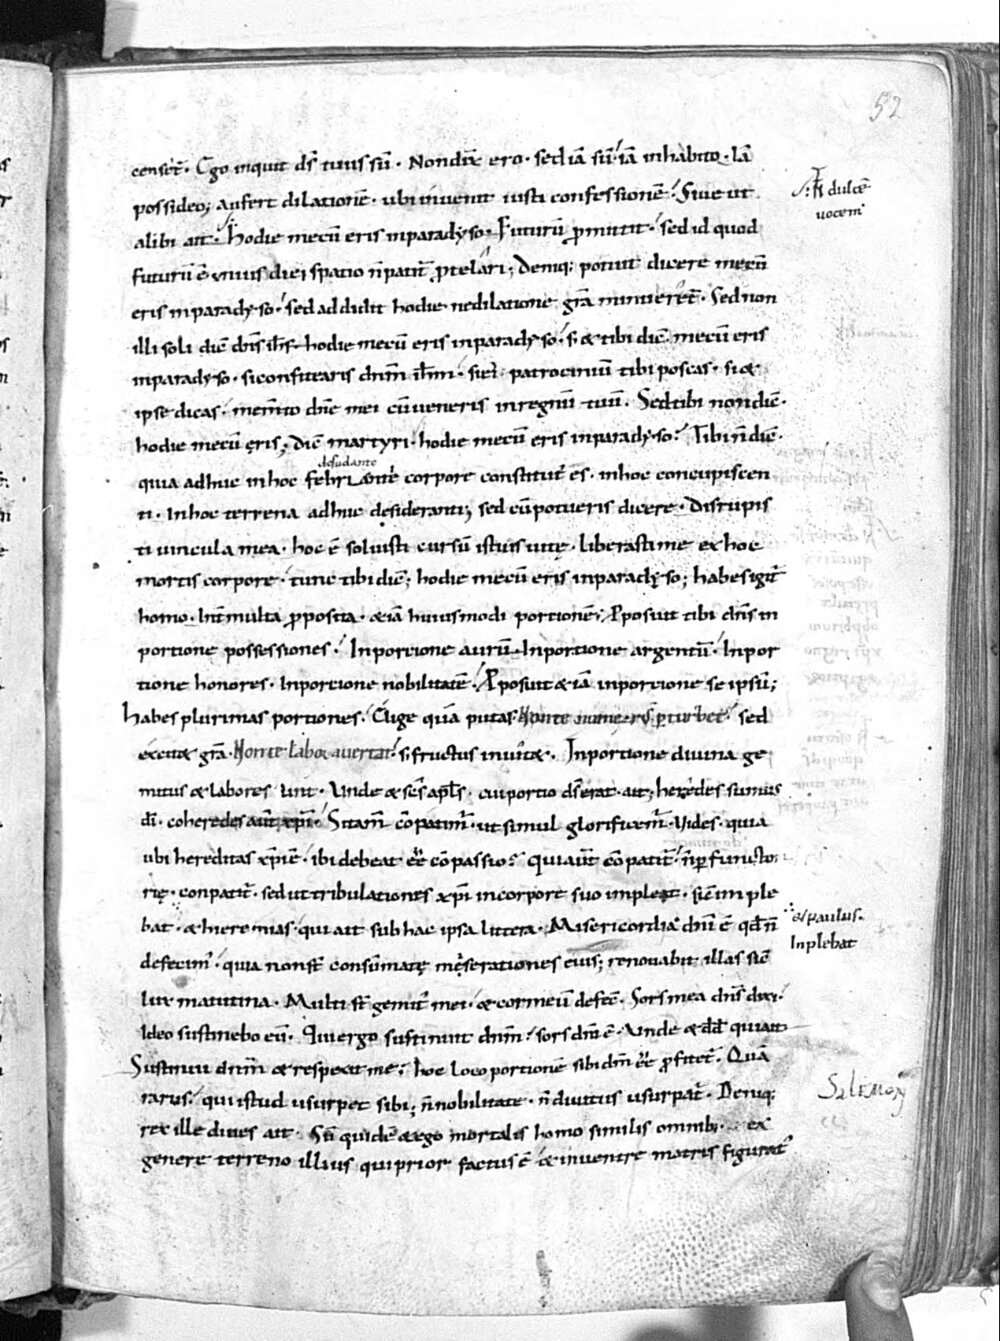 52
censet̅. Ego inquit dś tuus sū. Nondū ero. sed iā sū. iā inhabito. Iā
possideo; aufert dilationē. ubi inuenit iusti confessionē. Siue ut
alibi ait. Hodie mecū eris inparadyso. Futurū ꝓmittit. sed id quod
futurū ē unius diei spatio n̄ patit̄ ꝓtelari; Deniq; potuit dicere mecū
eris inparadyso. sed addidit hodie. nedilatione gr̄a minueret̄. Sed non
illi soli dic̄ dn̄s ih̄s. hodie mecū eris inparadyso. s; & tibi dic̄. mecū eris
inparadyso. si confitearis dn̄m ih̄m. si ei patrociniū tibi poscas. si &
ipse dicas. mem̄to dn̄e mei cū ueneris in regnū tuū. Sed tibi non dic̄.
hodie mecū eris; Dic̄ martyri. hodie mecū eris inparadyso. Tibi n̄ dic̄.
desudante
quia adhuc in hoc febricante corpore constitut̄ es. inhoc concupiscen
ti. In hoc terrena adhuc desideranti; sed cū potueris dicere. Disrupis
ti uincula mea. hoc ē soluisti cursū istius uitę. liberasti me ex hoc
mortis corpore. tunc tibi dic̄; hodie mecū eris inparadyso; habes igit̄
homo. Int̄ multa ꝓposita. & iā huiusmodi portionē; P̄posuit tibi dn̄s in
portione possessiones. Inportione aurū. Inportione argentū. Inpor
tione honores. Inportione nobilitatē. P̄posuit & iā inportione se ipsū;
habes plurimas portiones. Elige quā putas. Non te numerus ꝑturbet. sed
excitet gr̄a. Non te labor auertat. si fructus inuitet. Inportione diuina ge
mitus & labores sunt. Unde & sc̄s apl̄s. cui portio ds̄ erat. ait; heredes sumus
dī. coheredes aut̄ xp̄i. Si tam̄ cōpatim̄. ut simul glorificem̄. Uides. quia
ubi hereditas xp̄i ē. ibi debeat ee̅ cōpassio. Qui aut̄ cōpatit̄. n̄ ꝑfuncto
rię. conpatit̄. sed ut tribulationes xp̄i in corpore suo impleat. sic̄ imple
bat. & hieremias. qui ait sub hac ipsa littera. Misericordia dn̄i ē qd̄ n̄
defecim̄. quia non st̄ consūmatę miserationes eius; renouabit illas sic̄
lux matutina. Multi st̄ gemit̄ mei. & cor meū defec̄. Sors mea dn̄s dixi.
Ideo sustinebo eū. Qui ergo sustinent dn̄m. sors dn̄i ē. Unde & dd̄ qui ait
Sustinui dn̄m & respexit me; hoc loco portionē sibi dn̄m ee̅ ꝓfitet̄. Quā
rarus. qui istud usurpet sibi; n̄ nobilitate. n̄ diuitiis usurpat̄. Deniq;
rex ille diues ait. Sū quidē & ego mortalis homo similis omnib; ex
genere terreno illius qui prior factus ē & in uentre matris figurat̄
dulcē
uocem
et paulus.
Inplebat